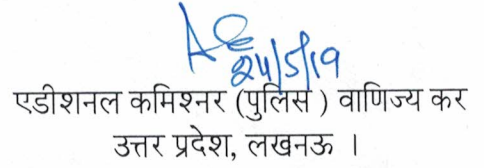 24/5/19
एडीशनल कमिश्नर (पुलिस ) वाणिज्य कर
उत्तर प्रदेश, लखनऊ ।